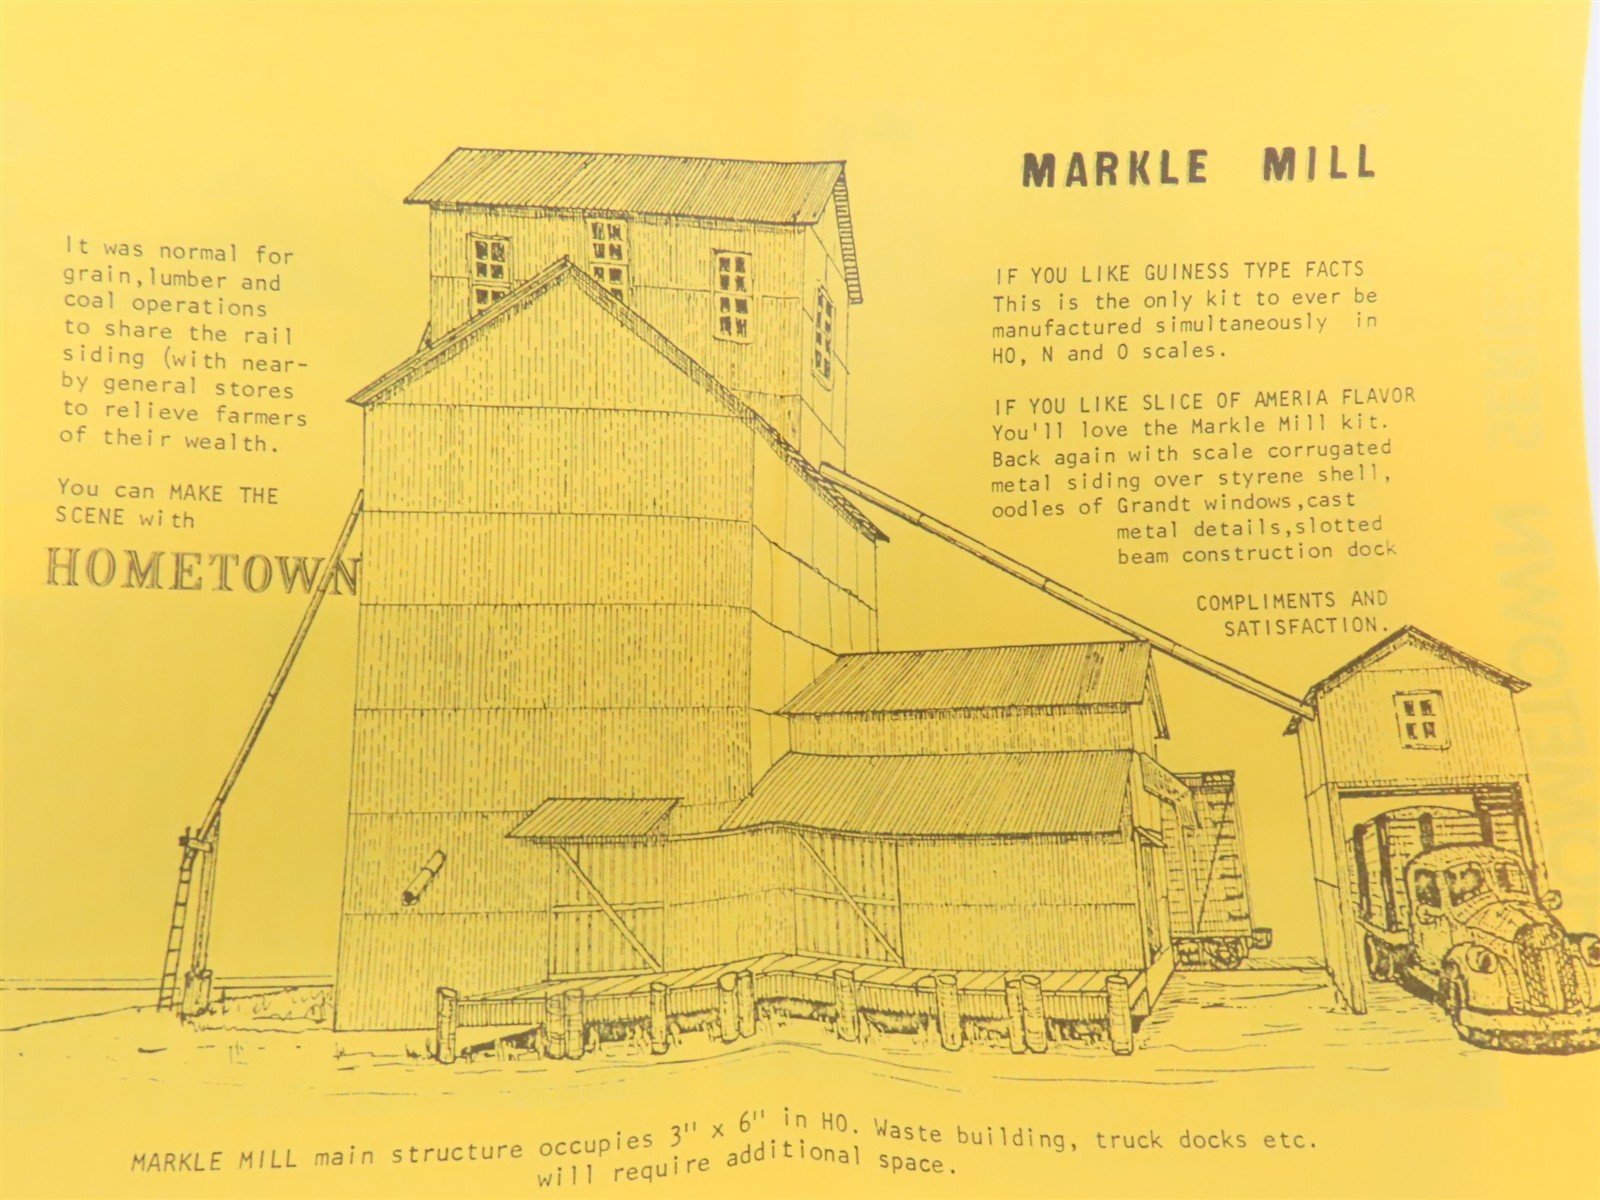 MARKLE MILL
It was normal for
grain,lumber and
coal operations
to share the rail
siding (with near-
by general stores
to relieve farmers
of their wealth.
You can MAKE THE
SCENE with
HOMETOWN
IF YOU LIKE GUINESS TYPE FACTS
This is the only kit to ever be
manufactured simultaneously in
HO, N and O scales.
IF YOU LIKE SLICE OF AMERIA FLAVOR
You'll love the Markle Mill kit.
Back again with scale corrugated
metal siding over styrene shell,
oodles of Grandt windows,cast
metal details,slotted
beam construction dock
COMPLIMENTS AND
SATISFACTION.
MARKLE MILL main structure occupies 3" x 6" in HO. Waste building, truck docks etc.
will require additional space.